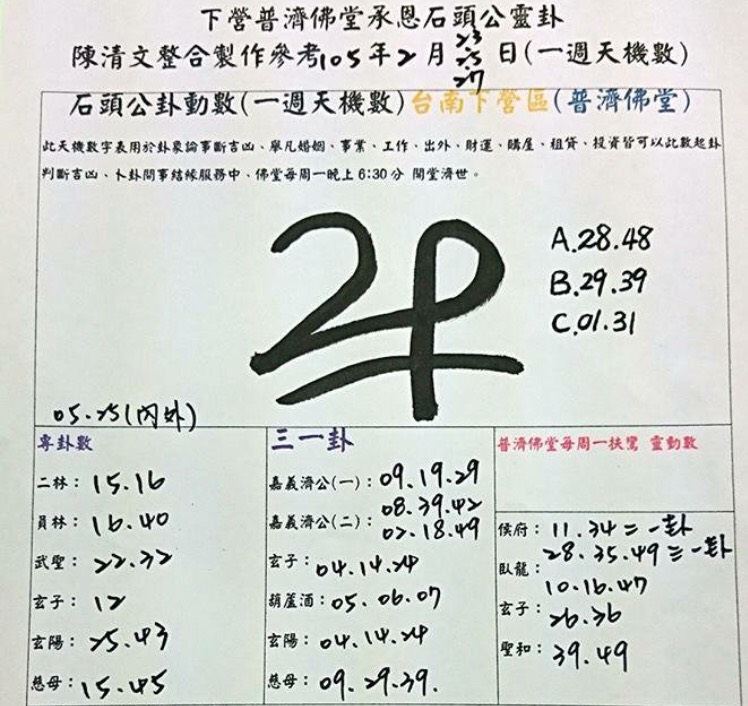 下營普濟佛堂承恩石頭公靈卦
23
陳清文整合製作參考105年2月25日(一週天機數)
27
石頭公卦動數(一週天機數)台南下營區(普濟佛堂)
此天機數字表用於卦象論事斷吉凶、舉凡婚姻、事業、工作、出外、財運、購屋、租貸、投資皆可以此數起卦
判斷吉凶、卜卦問事結緣服務中、佛堂每周一晚上6:30分 開堂濟世。
A.28.48
B.29.39
C.01.31
05.25(內外)
專卦數
二林：15.16
員林：16.40
武聖：22.32
玄子：12
玄陽：25.43
慈母：15.45
三一卦
嘉義濟公(一)：09.19.29
嘉義濟公(二)：08.39.42
02.18.49
玄子：04.14.24
葫蘆酒：05.06.07
玄陽：04.14.24
慈母：09.29.39.
普濟佛堂每周一扶鸞 靈動數
侯府：11.34=一卦
28.35.49三一卦
臥龍：
10.16.47
玄子：26.36
聖和：39.49